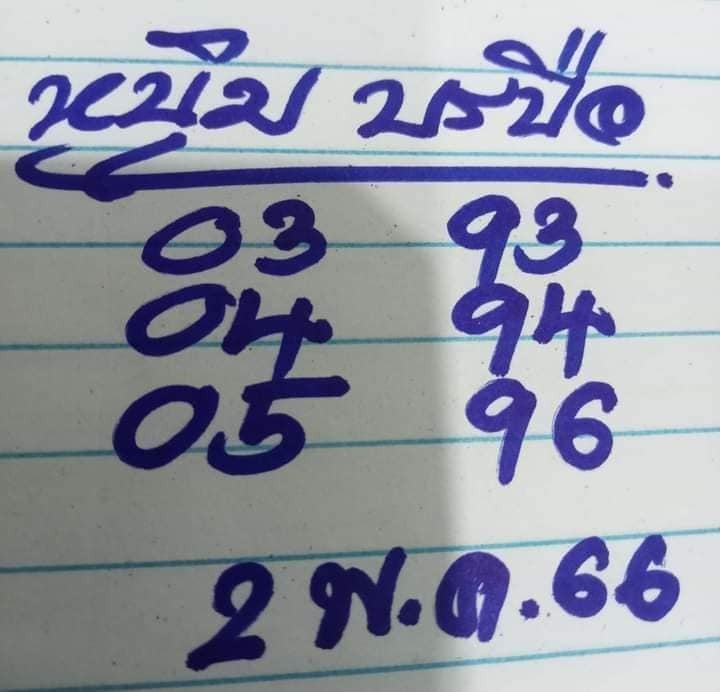 หนึ่ม บรบือ
03 93
04 94
05 96
2 พ.ค.66